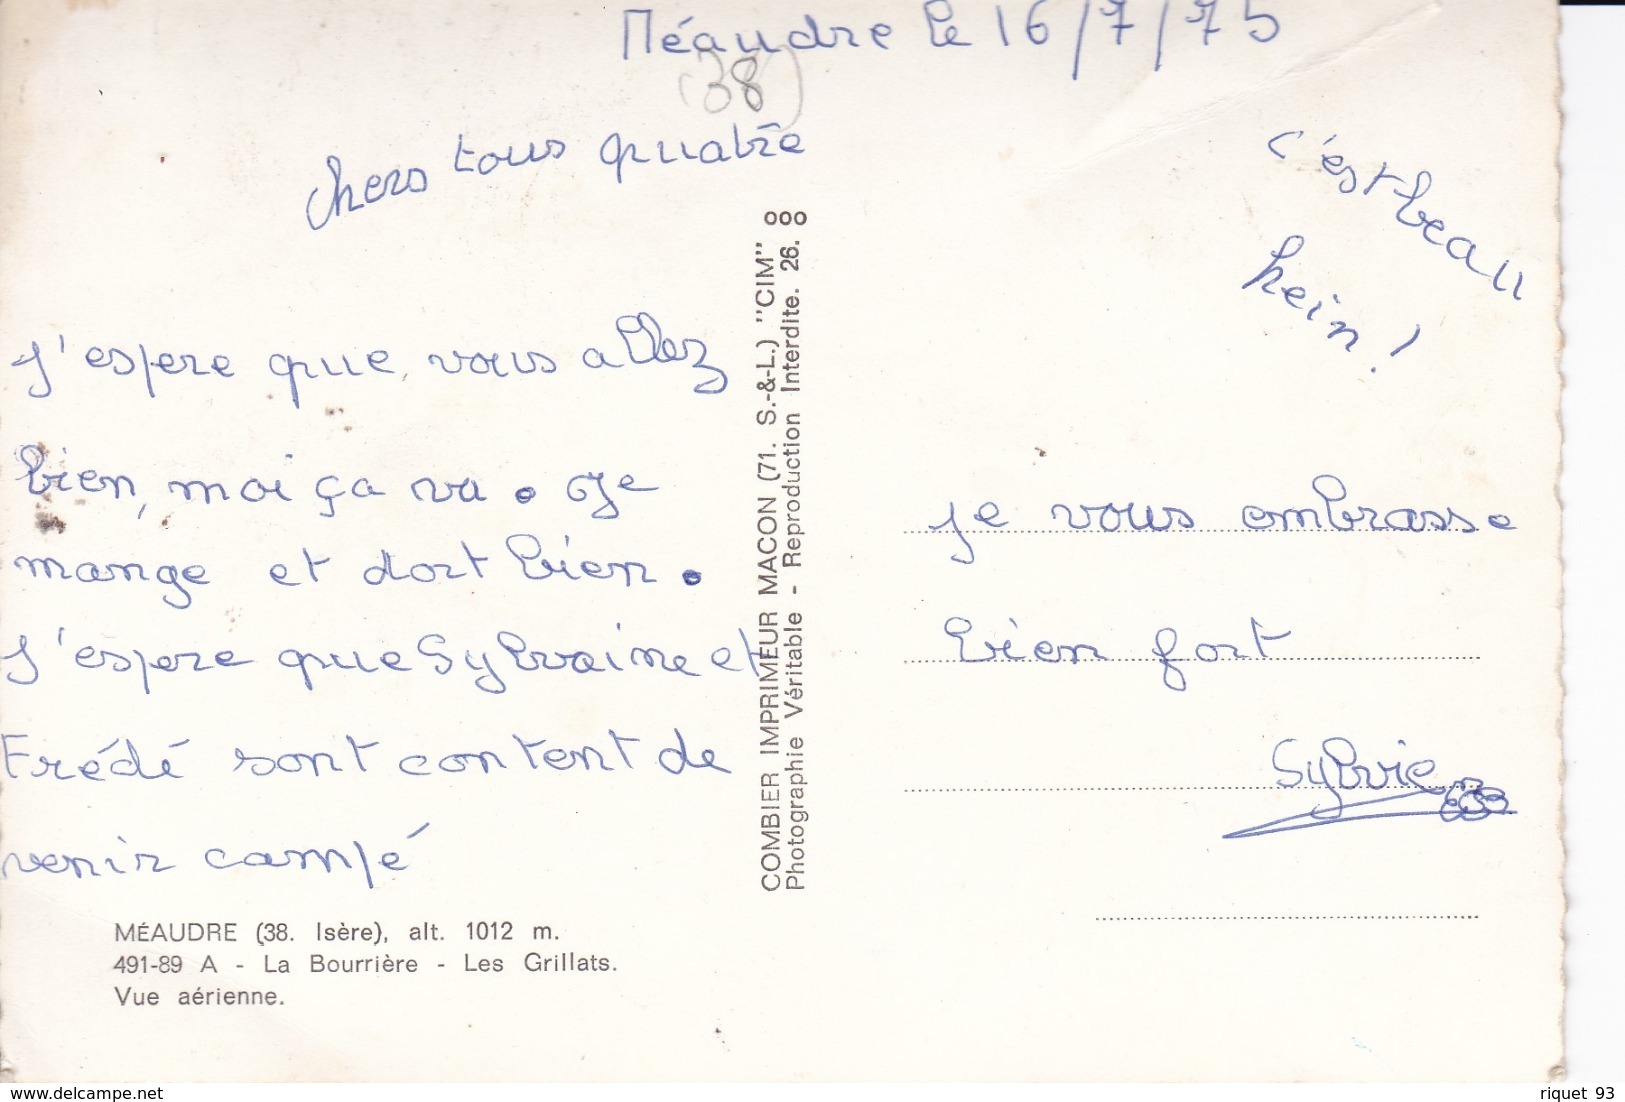 Méaudre le 16/7/75
(38)
chers tous quatre
J'espere que vous allez
bien, moi ça va. Je
mange et dort bien.
J'espere que Sylvaine et
Frédé sont content de
venir campé
MÉAUDRE (38. Isère), alt. 1012 m.
491-89 A - La Bourrière - Les Grillats.
Vue aérienne.
COMBIER IMPRIMEUR MACON (71. S.-&-L.) "CIM"
Photographie Véritable - Reproduction Interdite. 26.
c'est beau
hein!
je vous embrasse
bien fort
Sylvie
delcampe.net
riquet 93